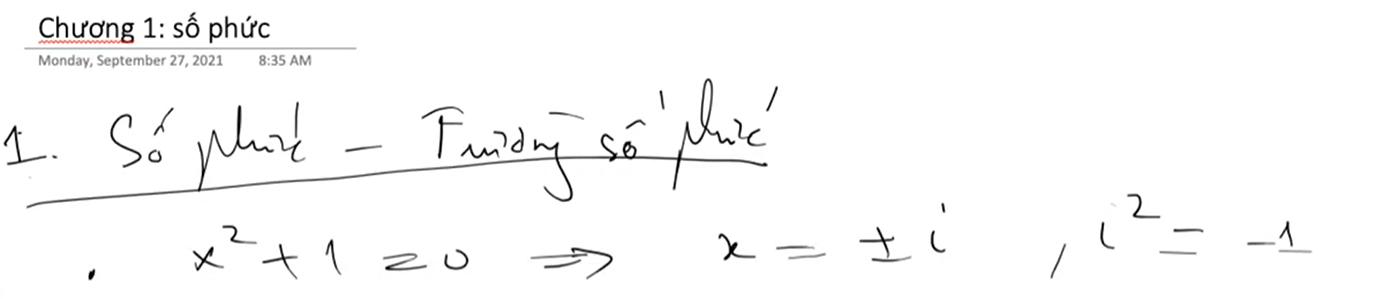 Chương 1: số phức
Monday, September 27, 2021 8:35 AM
1. Số phức - Trường số phức
. x² + 1 = 0 => x = ± i , i² = -1